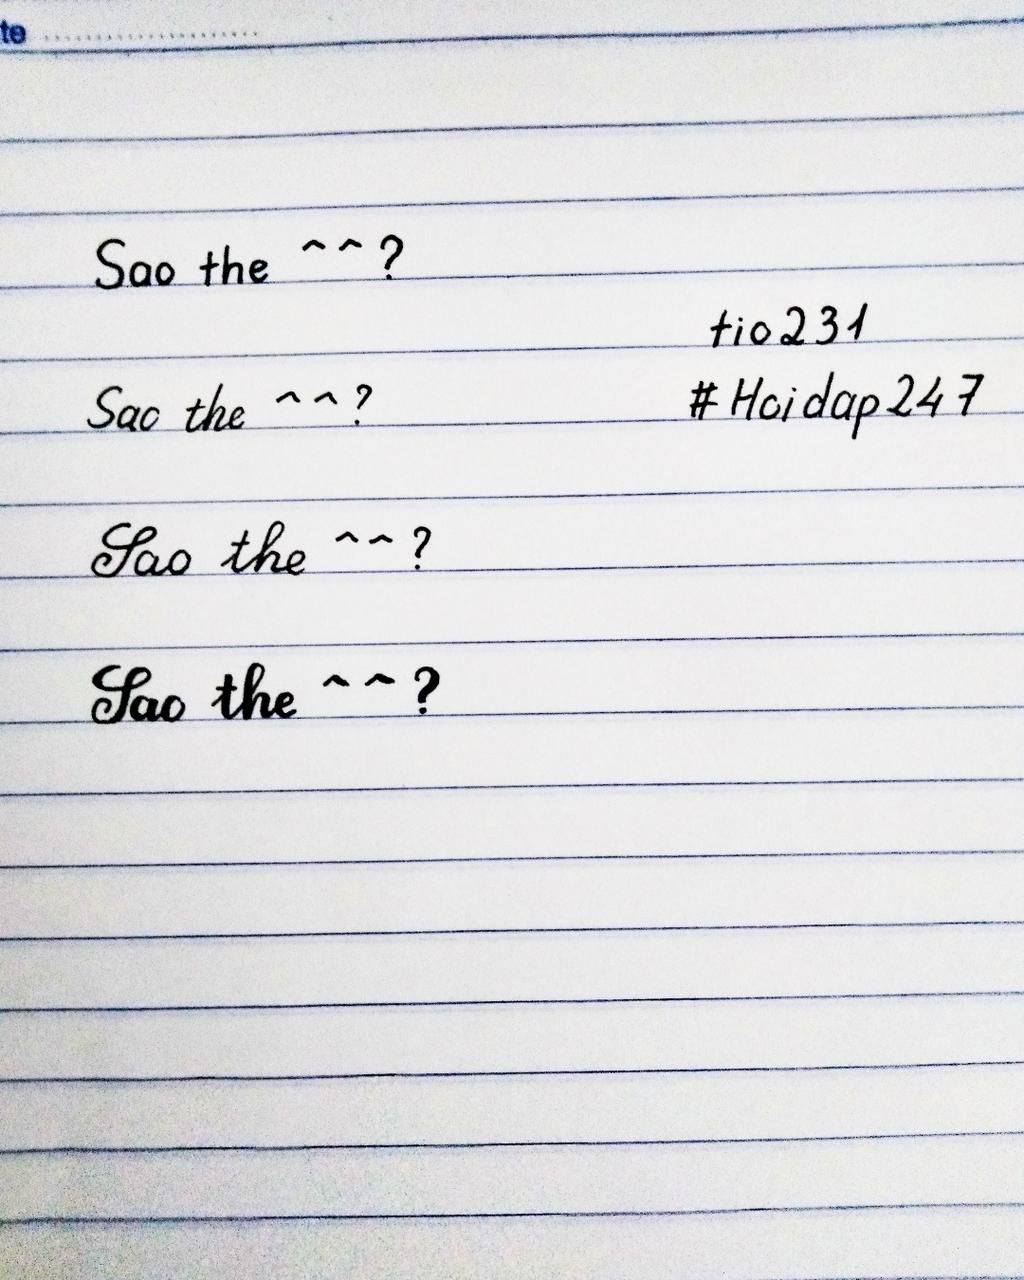 te ........................
Sao the ^^?
tio231
Sao the ^^?
#Hoidap247
Sao the ^^?
Sao the ^^?